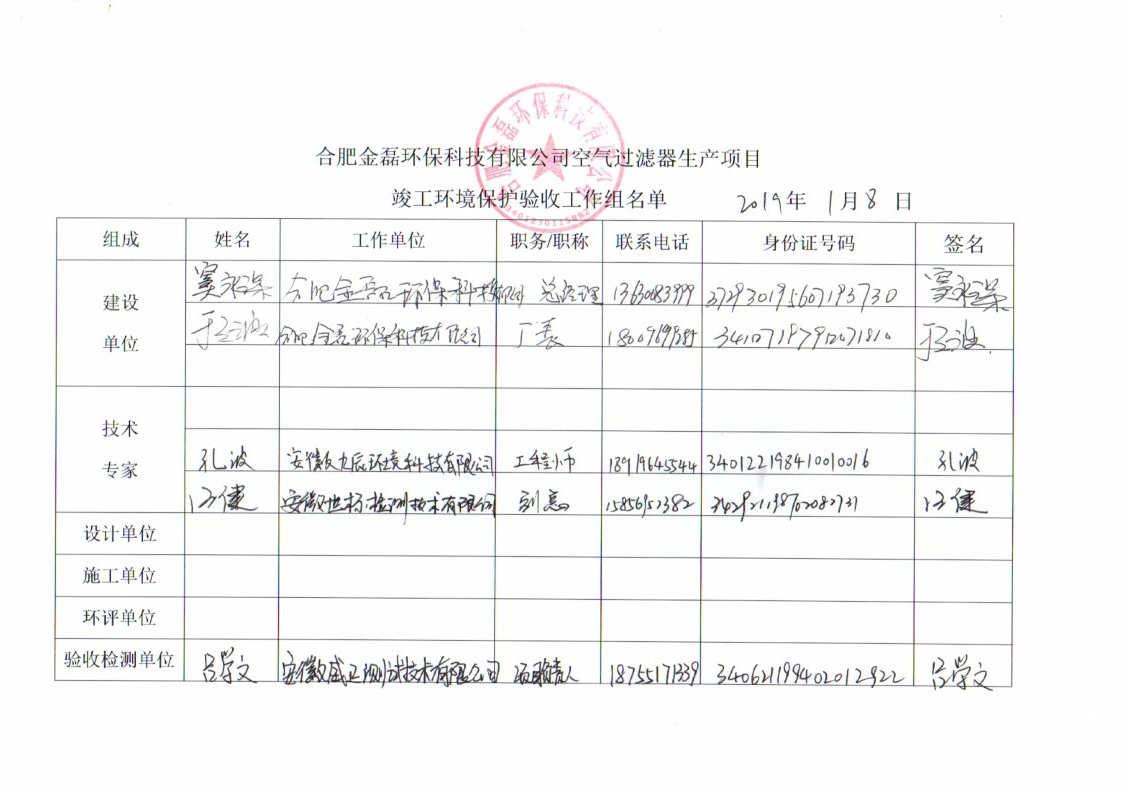 合肥金磊环保科技有限公司
合肥金磊环保科技有限公司空气过滤器生产项目
竣工环境保护验收工作组名单 2019年 1月8日
组成 姓名 工作单位 职务/职称 联系电话 身份证号码 签名
建设
单位
合肥金磊环保科技有限公司 总经理
合肥金磊环保科技有限公司 厂长
技术
专家
孔波 安徽 九辰环境科技有限公司 工程师 18919645544 340122198410010016 孔波
汪健 安徽世标检测技术有限公司 汪健
设计单位
施工单位
环评单位
验收检测单位 吕学文 安徽威正测试技术有限公司 项目负责人 18755171339 340621199402012922 吕学文